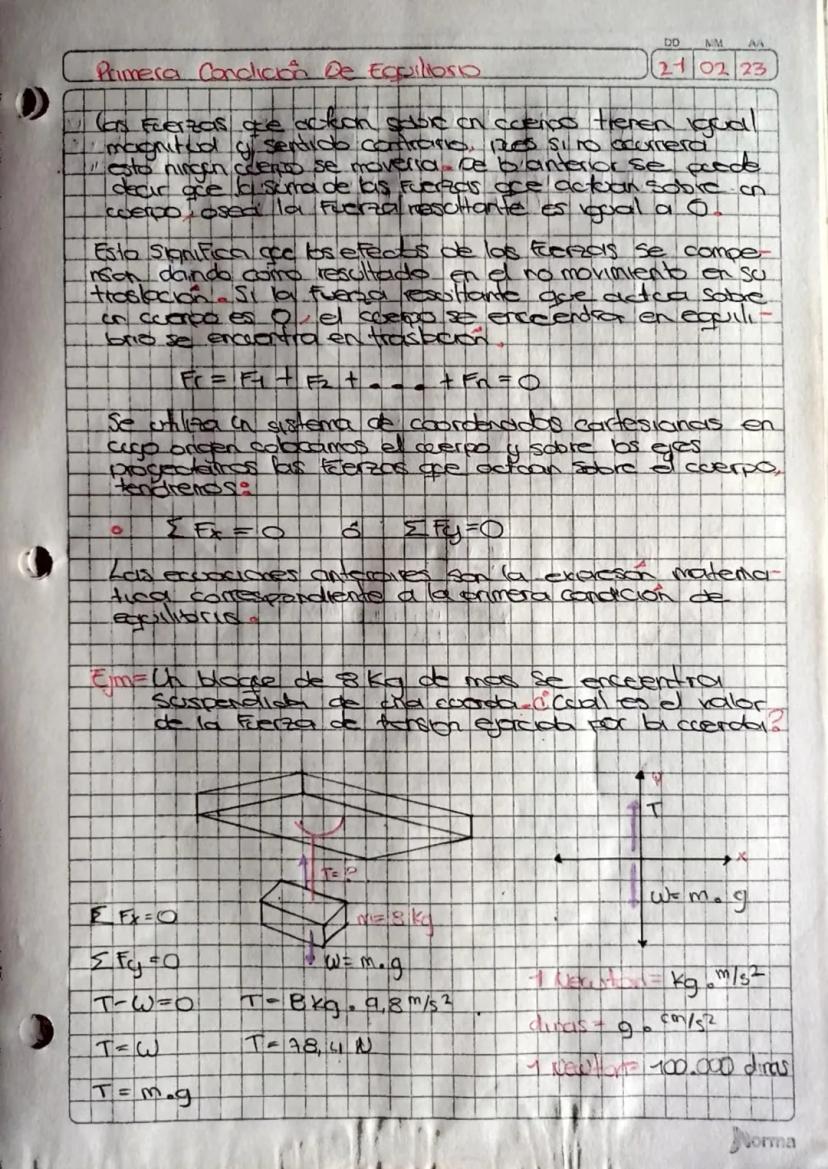 DD MM AA
Primera Condición De Equilibrio 21 02 23
Las fuerzas que actuan sobre un cuerpo tienen igual
magnitud y sentido contrario, pues si no ocurriera
esto ningun cuerpo se moveria. De lo anterior se puede
decir que la suma de las fuerzas que actuan sobre un
cuerpo, osea la fuerza resultante es igual a 0.
Esto significa que los efectos de las fuerzas se compe-
nsan dando como resultado en el no movimiento en su
traslación. Si la fuerza resultante que actua sobre
un cuerpo es 0, el cuerpo se encuentra en equili-
brio se encuentra en traslación.
Fr = F1 + F2 + . . . + Fn = 0
Se utiliza un sistema de coordenadas cartesianas en
cuyo origen colocamos el cuerpo y sobre los ejes
proyectamos las fuerzas que actuan sobre el cuerpo,
tendremos:
• Σ Fx = 0 ó Σ Fy = 0
Las ecuaciones anteriores son la expresión matema-
tica correspondiente a la primera condición de
equilibrio.
Ejm = Un bloque de 8 Kg de mas se encuentra
suspendida de una cuerda. ¿Cual es el valor
de la fuerza de tension ejercida por la cuerda?
Y
T
T = ?
X
W = m . g
Σ Fx = 0 m = 8 Kg
Σ Fy = 0 W = m . g
1 Newton = Kg . m/s²
T - W = 0 T = 8 kg . 9,8 m/s²
dinas = g . cm/s²
T = W T = 78,4 N
1 Newton = 100.000 dinas
T = m . g
Norma